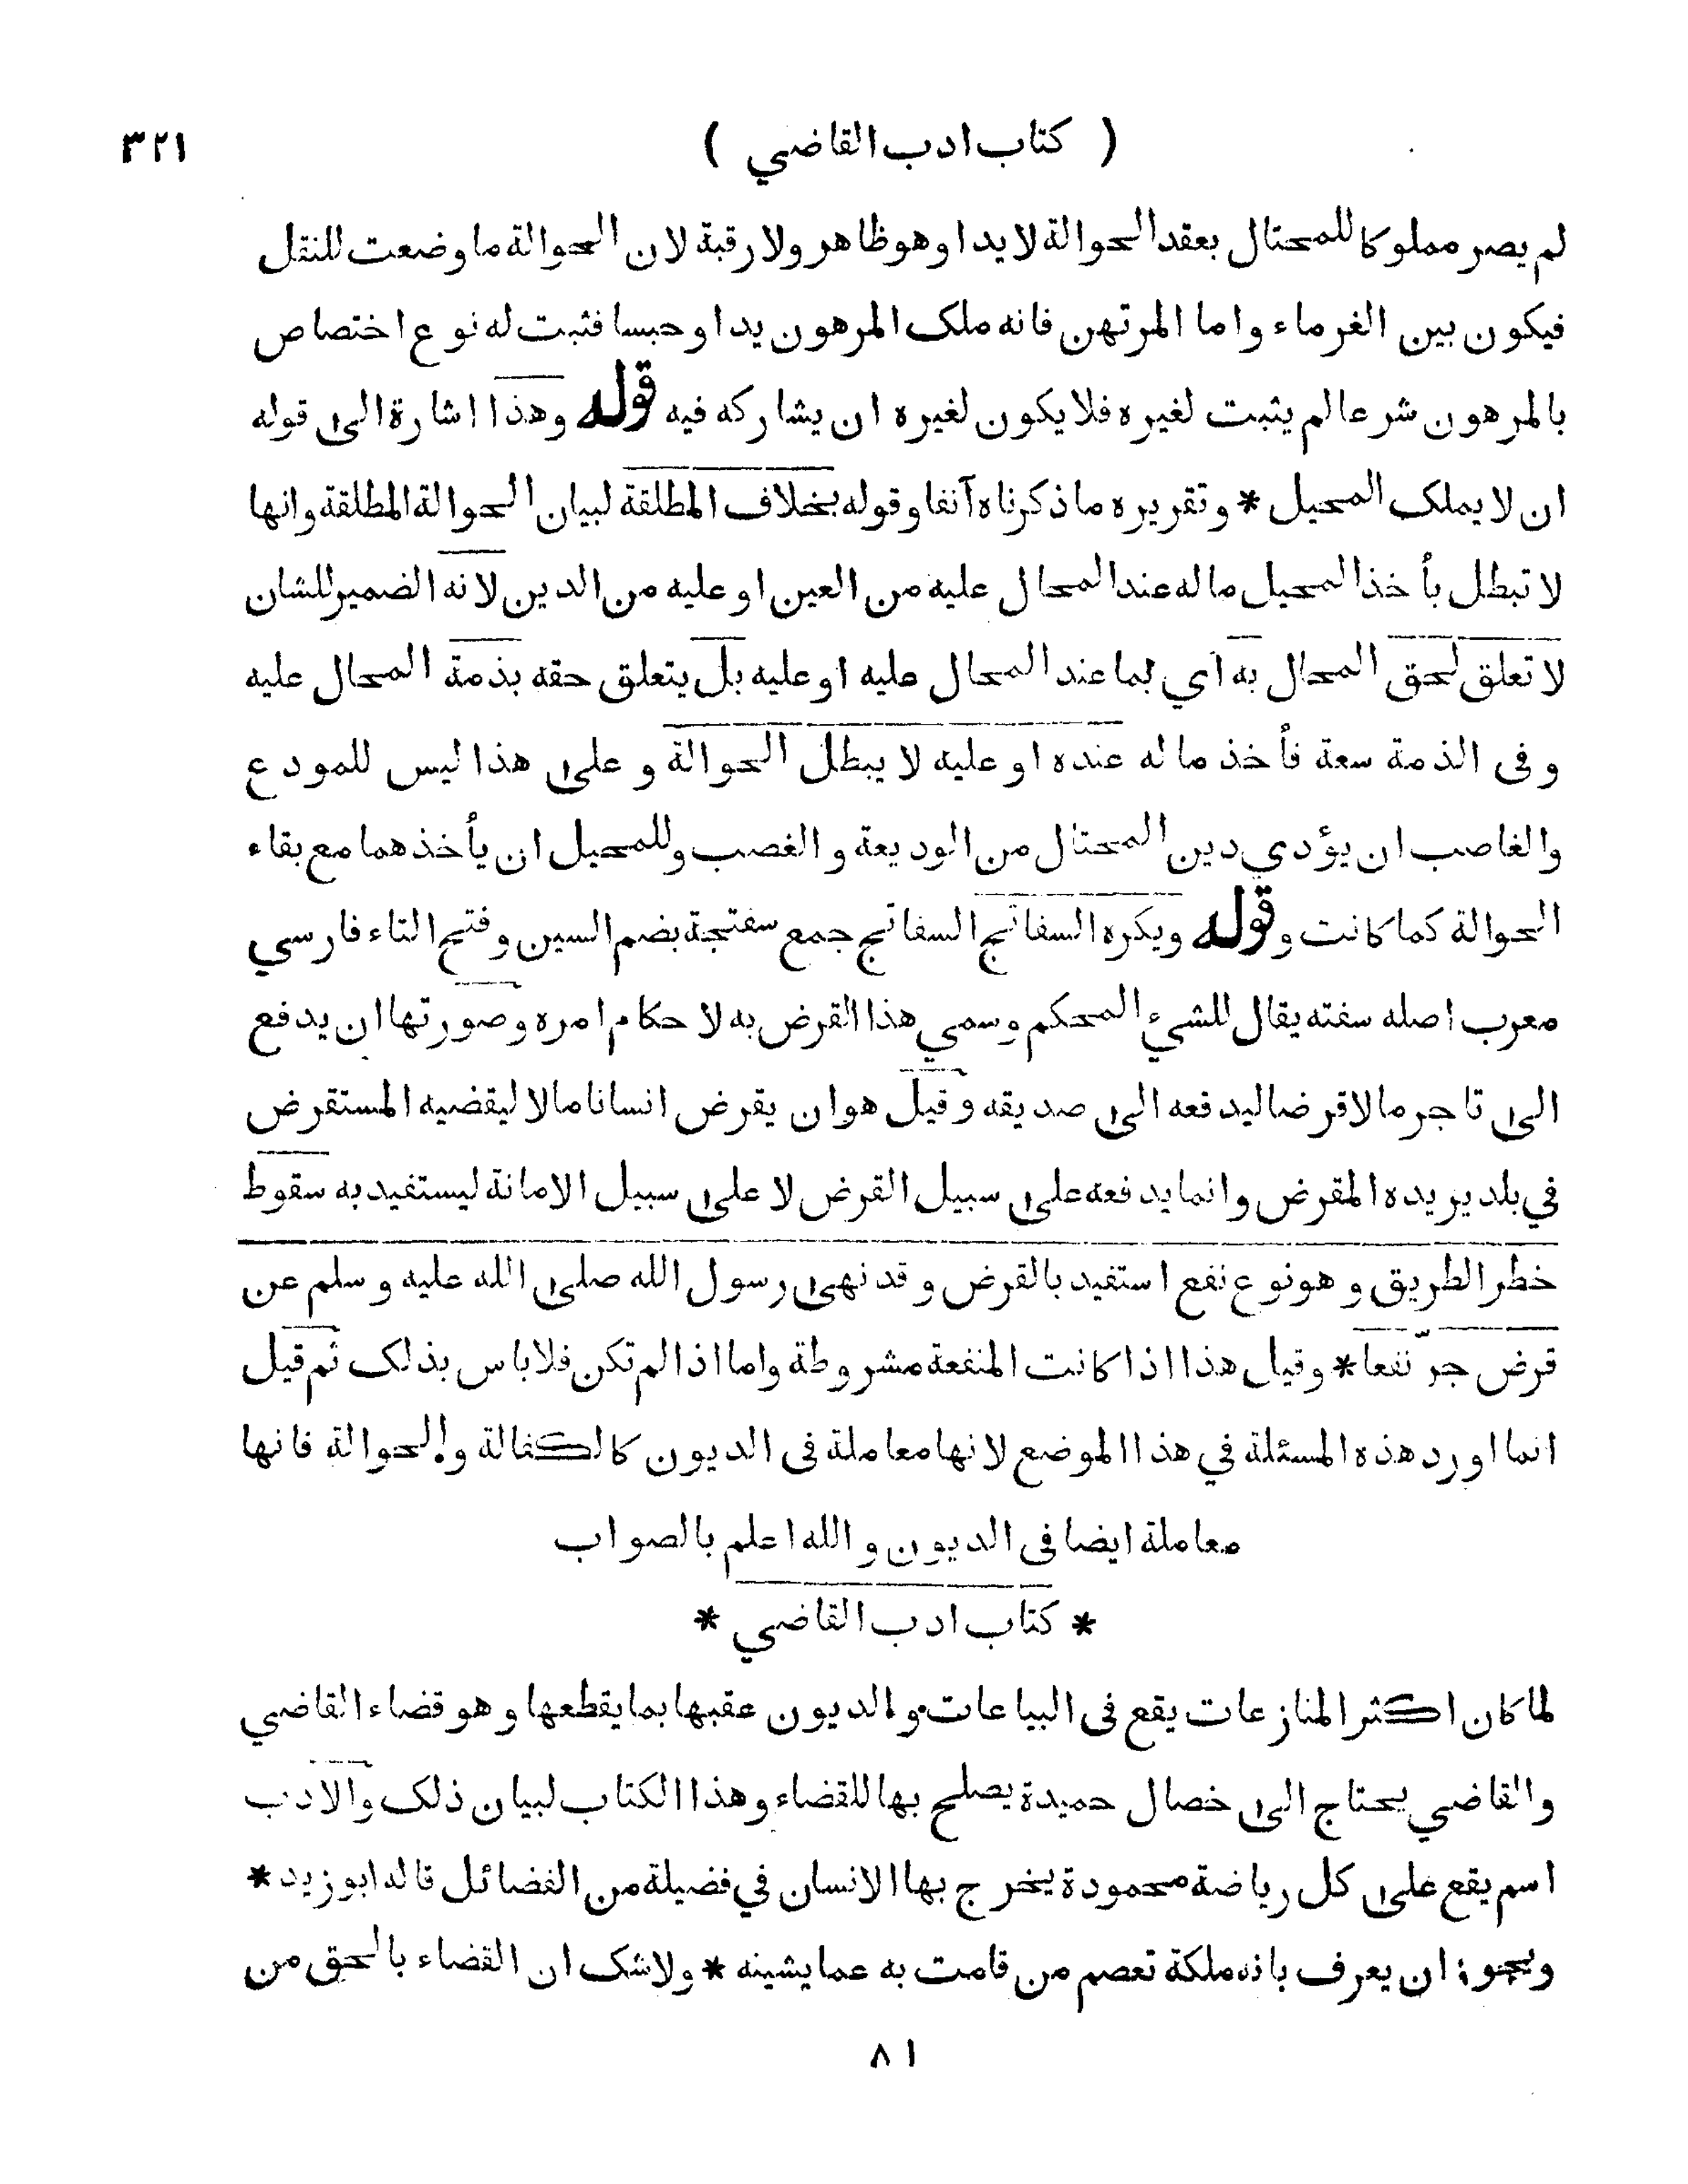 ( كتاب ادب القاضي ) ٣٢١
لم يصر مملوكا للمحتال بعقد الحوالة لا يدا وهو ظاهر ولا رقبة لان الحوالة ما وضعت للنقل
فيكون بين الغرماء واما المرتهن فانه ملك المرهون يدا وحبسا فثبت له نوع اختصاص
بالمرهون شرعا لم يثبت لغيره فلا يكون لغيره ان يشاركه فيه قوله وهذا اشارة الى قوله
ان لا يملك المحيل * وتقريره ما ذكرناه آنفا وقوله بخلاف المطلقة لبيان الحوالة المطلقة وانها
لا تبطل بأخذ المحيل ما له عند المحال عليه من العين او عليه من الدين لانه الضمير للشان
لا تعلق لحق المحال به أي بما عند المحال عليه او عليه بل يتعلق حقه بذمة المحال عليه
وفى الذمة سعة فأخذ ما له عنده او عليه لا يبطل الحوالة وعلى هذا ليس للمودع
والغاصب ان يؤدي دين المحتال من الوديعة والغصب وللمحيل ان يأخذهما مع بقاء
الحوالة كما كانت وقوله ويكره السفاتج السفاتج جمع سفتجة بضم السين وفتح التاء فارسي
معرب اصله سفته يقال للشيء المحكم وسمي هذا القرض به لاحكام امره وصورتها ان يدفع
الى تاجر مالا قرضا ليدفعه الى صديقه وقيل هو ان يقرض انسانا مالا ليقضيه المستقرض
في بلد يريده المقرض وانما يدفعه على سبيل القرض لا على سبيل الامانة ليستفيد به سقوط
خطر الطريق وهو نوع نفع استفيد بالقرض وقد نهى رسول الله صلى الله عليه وسلم عن
قرض جرّ نفعا * وقيل هذا اذا كانت المنفعة مشروطة واما اذا لم تكن فلا باس بذلك ثم قيل
انما اورد هذه المسئلة في هذا الموضع لانها معاملة فى الديون كالكفالة والحوالة فانها
معاملة ايضا فى الديون والله اعلم بالصواب
* كتاب ادب القاضي *
لما كان اكثر المنازعات يقع فى البياعات والديون عقبها بما يقطعها وهو قضاء القاضي
والقاضي يحتاج الى خصال حميدة يصلح بها للقضاء وهذا الكتاب لبيان ذلك والادب
اسم يقع على كل رياضة محمودة يخرج بها الانسان في فضيلة من الفضائل قاله ابو زيد *
ويجوز ان يعرف بانه ملكة تعصم من قامت به عما يشينه * ولا شك ان القضاء بالحق من
٨١